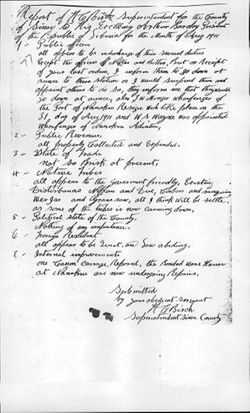 Report of H C Birch Superintendent for the County
of Sinoe to His Excellency Arthur Barclay President
of the Republic of Liberia for the Month of Aug 1911
1 - Public officers
all appear to be in charge of their several duties
Except the officers of and on Receipt
of your last orders, I inform them to go down at
once to their Station or I would suspend them and
appoint others to do so, they inform me that they would
go down at once,
of the Port of Nanakru Resign his place on the
31st day of Aug 1911 and W. N. Wayne was appointed
Wharfinger of Nanakru
2 - Public Revenues
all properly Collected and Expended.
3 - State of Trade
not so brisk at present.
4 - Native Tribes
all appear to the Government friendly, Excepting
Disturbances
all I think will be settle
as some of the tribes is now coming down.
5 - Political State of the County.
Nothing of any importance.
6 - Foreign Resident
all appear to be quiet, an law abiding.
7 - Internal improvements
one Canon Carriage Repared, the Bonded Ware House
at Nanakru are now undergoing Repairs.
Submitted
by your obedient servant
H C Birch
Superintendent Sinoe County